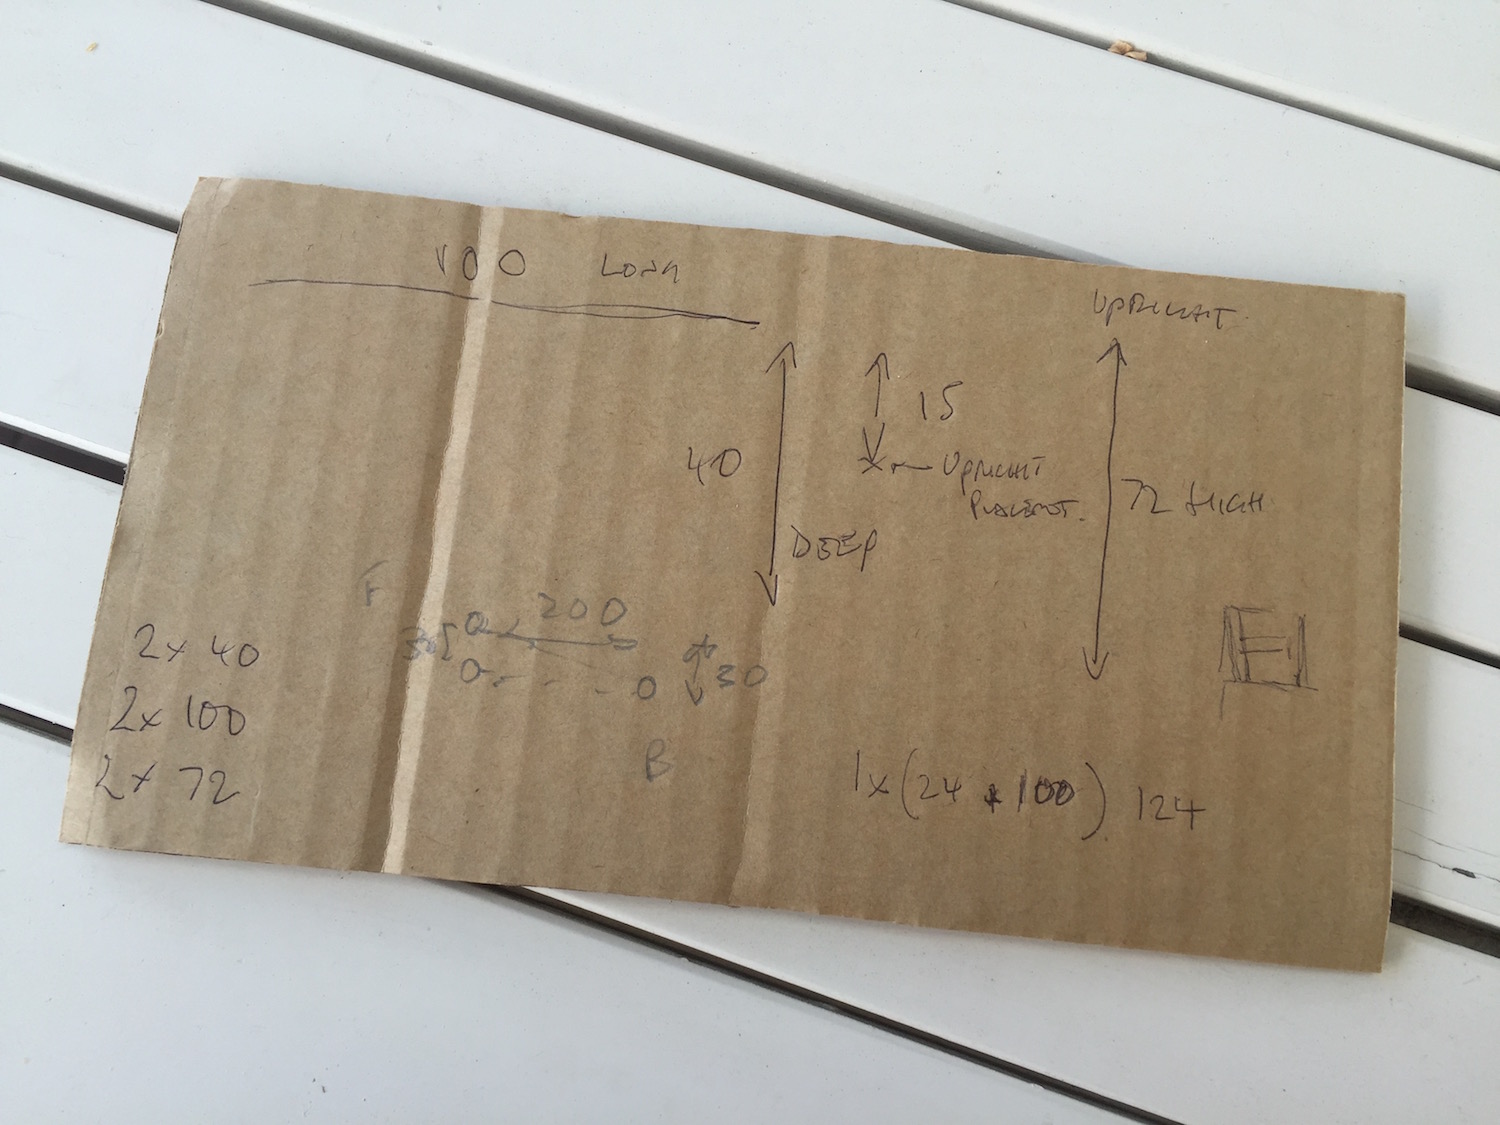 100 LONG
UPRIGHT
15
40
UPRIGHT
PLACEMENT.
72 HIGH
DEEP
F
200
30
30
B
2x 40
2x 100
2x 72
1x (24 + 100) 124